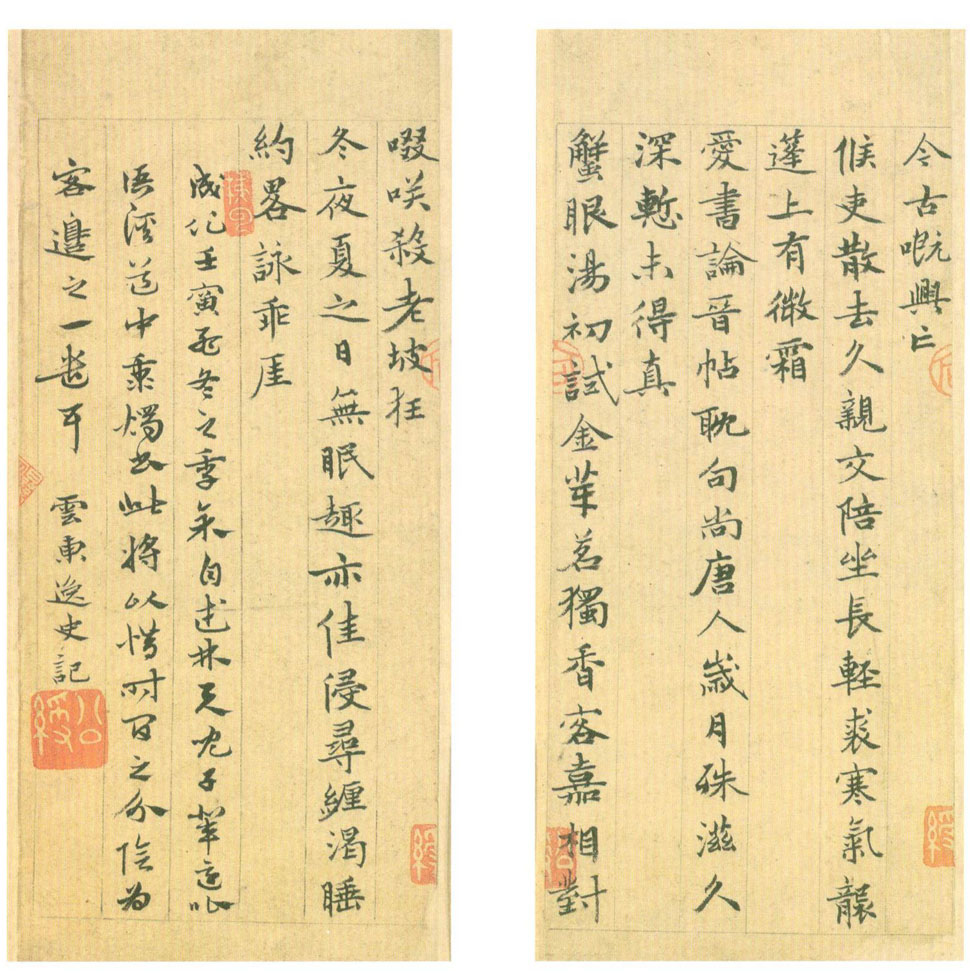 今古嘅興亡
候吏散去久親文陪坐長輕裘寒氣襲
蓬上有微霜
愛書論晉帖耽句尚唐人歲月殊滋久
深慙未得真
蟹眼湯初試金芽茗獨香客嘉相對
啜咲殺老坡狂
冬夜夏之日無眠趣亦佳浸尋纏渴睡
約畧詠乖厓
成化壬寅冬之季自子輩
語溪道中秉燭書此将以惜時日之分陰为
客邊之一耳 雲東逸史記
公綬